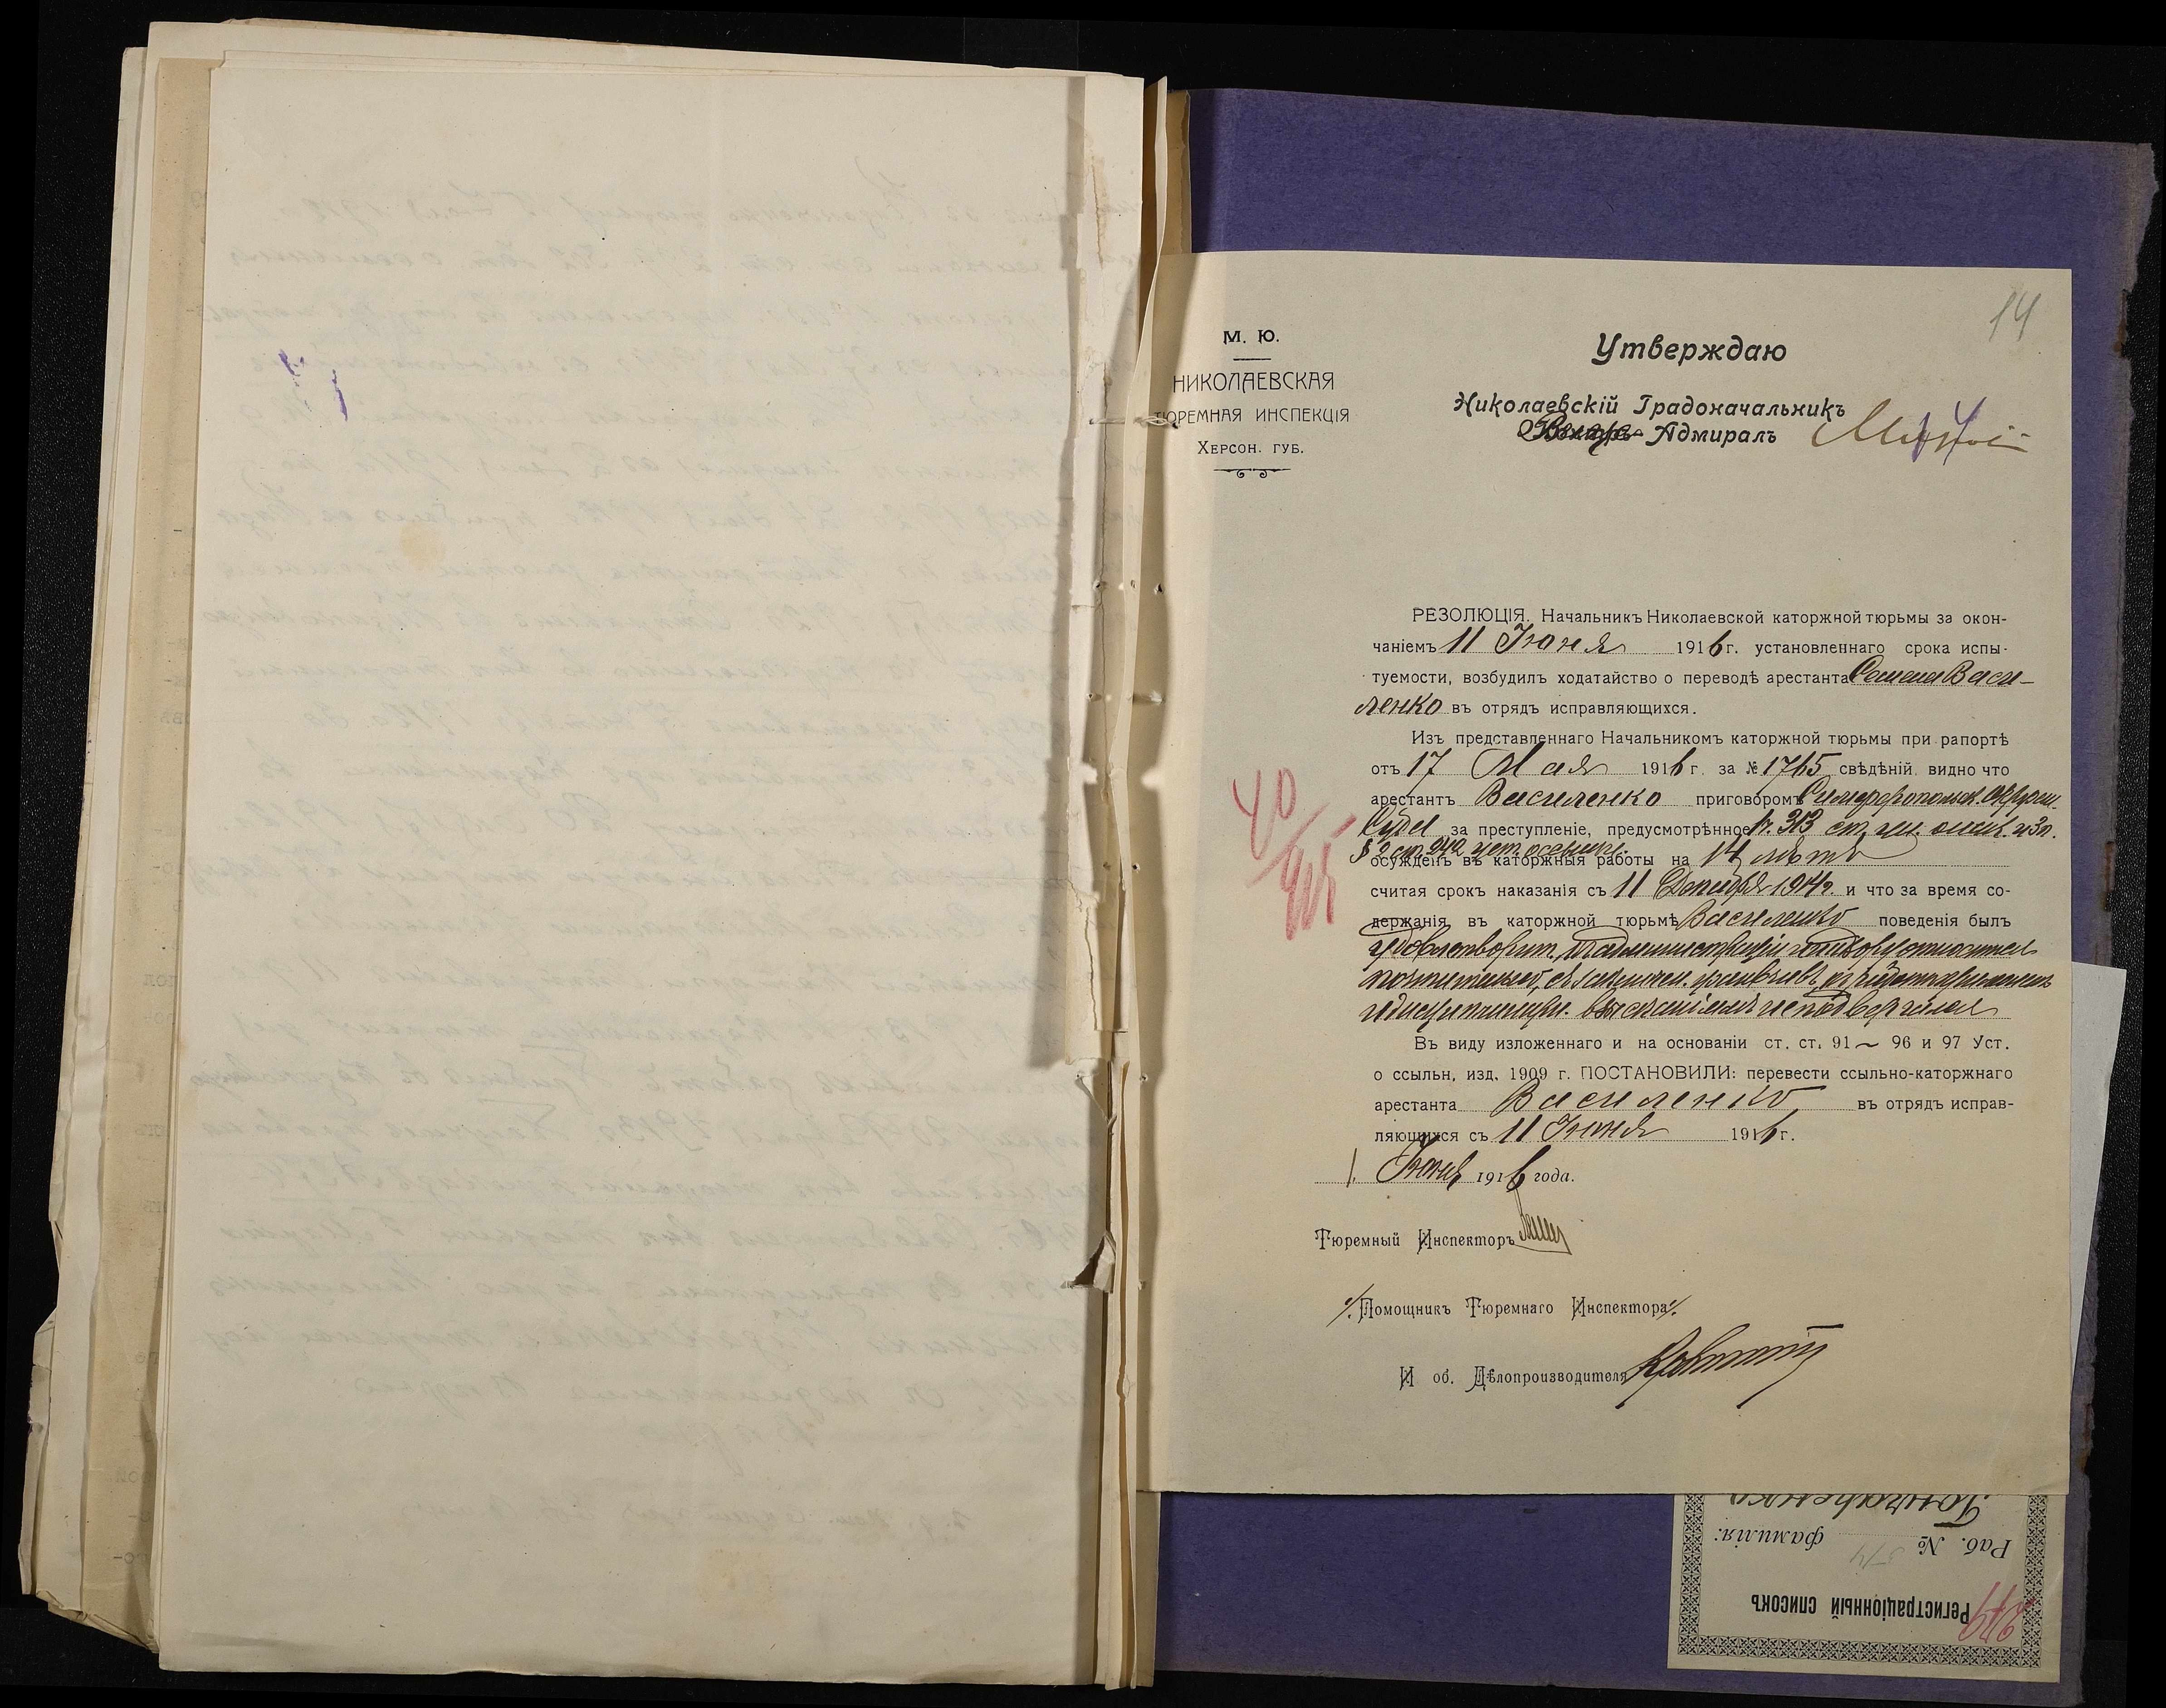 14
М. Ю.
НИКОЛАЕВСКАЯ
ТЮРЕМНАЯ ИНСПЕКЦІЯ
ХЕРСОН. ГУБ.
Утверждаю
Николаевскій Градоначальникъ
Адмиралъ
РЕЗОЛЮЦІЯ. Начальникъ Николаевской каторжной тюрьмы за окон-
чаніемъ 11 Іюня 1916 г. установленнаго срока испы-
туемости, возбудилъ ходатайство о переводѣ арестанта Семена Васи-
ленко въ отрядъ исправляющихся.
Изъ представленнаго Начальникомъ каторжной тюрьмы при рапортѣ
отъ 17 Мая 1916 г. за № 1765 свѣдѣній видно что
арестантъ Василенко приговоромъ Симферопольск. Окружн.
Суда за преступленіе, предусмотрѣнное 313 ст.
§ 2 ст. 242 уст.
осужденъ въ каторжныя работы на 14 лѣтъ
считая срокъ наказанія съ 11 Декабря 1914г. и что за время со-
держанія въ каторжной тюрьмѣ Василенко поведенія былъ
удовлетворит., къ администраціи и надзору относился
почтительно, съ заключен. уживчивъ,
и дисциплинарн. взысканіямъ не подвергался
Въ виду изложеннаго и на основаніи ст. ст. 91 ~ 96 и 97 Уст.
о ссыльн, изд. 1909 г. ПОСТАНОВИЛИ: перевести ссыльно-каторжнаго
арестанта Василенко въ отрядъ исправ-
ляющихся съ 11 Іюня 1916 г.
1 Іюня 1916 года.
Тюремный Инспекторъ
Помощникъ Тюремнаго Инспектора
И об. Дѣлопроизводителя
Регистраціонный списокъ
Раб. № 514 фамилія:
Гончаренко